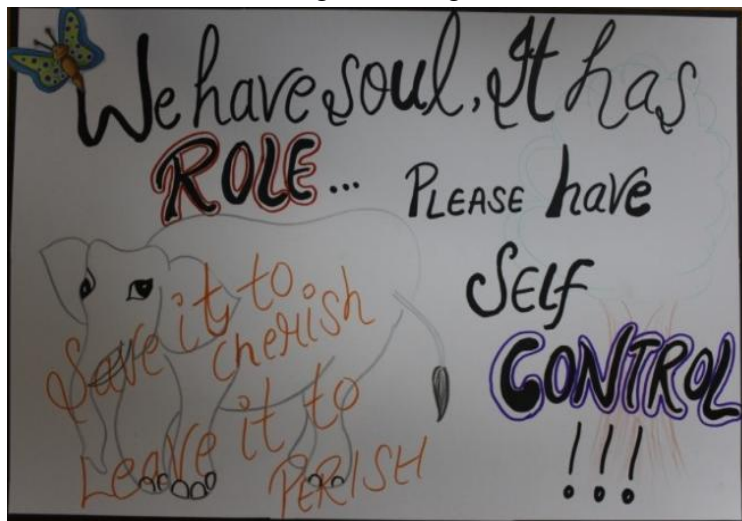 We have soul, It has
ROLE... PLEASE have
SELF
CONTROL
!!!
Save it to
cherish
Leave it to
PERISH